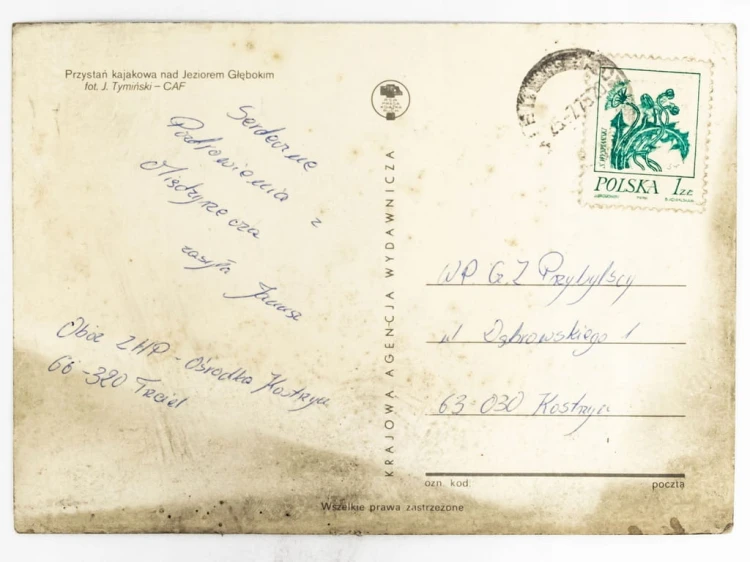 Przystań kajakowa nad Jeziorem Głębokim
fot. J. Tymiński – CAF
Serdeczne
Pozdrowienia z
Międzyrzecza
zasyła Janusz
Obóz ZHP - Ośrodka Kostrzyn
66-320 Trzciel
KRAJOWA AGENCJA WYDAWNICZA
POLSKA 1 ZŁ
WP G.Z Przybylscy
ul Dąbrowskiego 1
63-030 Kostrzyn
ozn. kod. poczta
Wszelkie prawa zastrzeżone